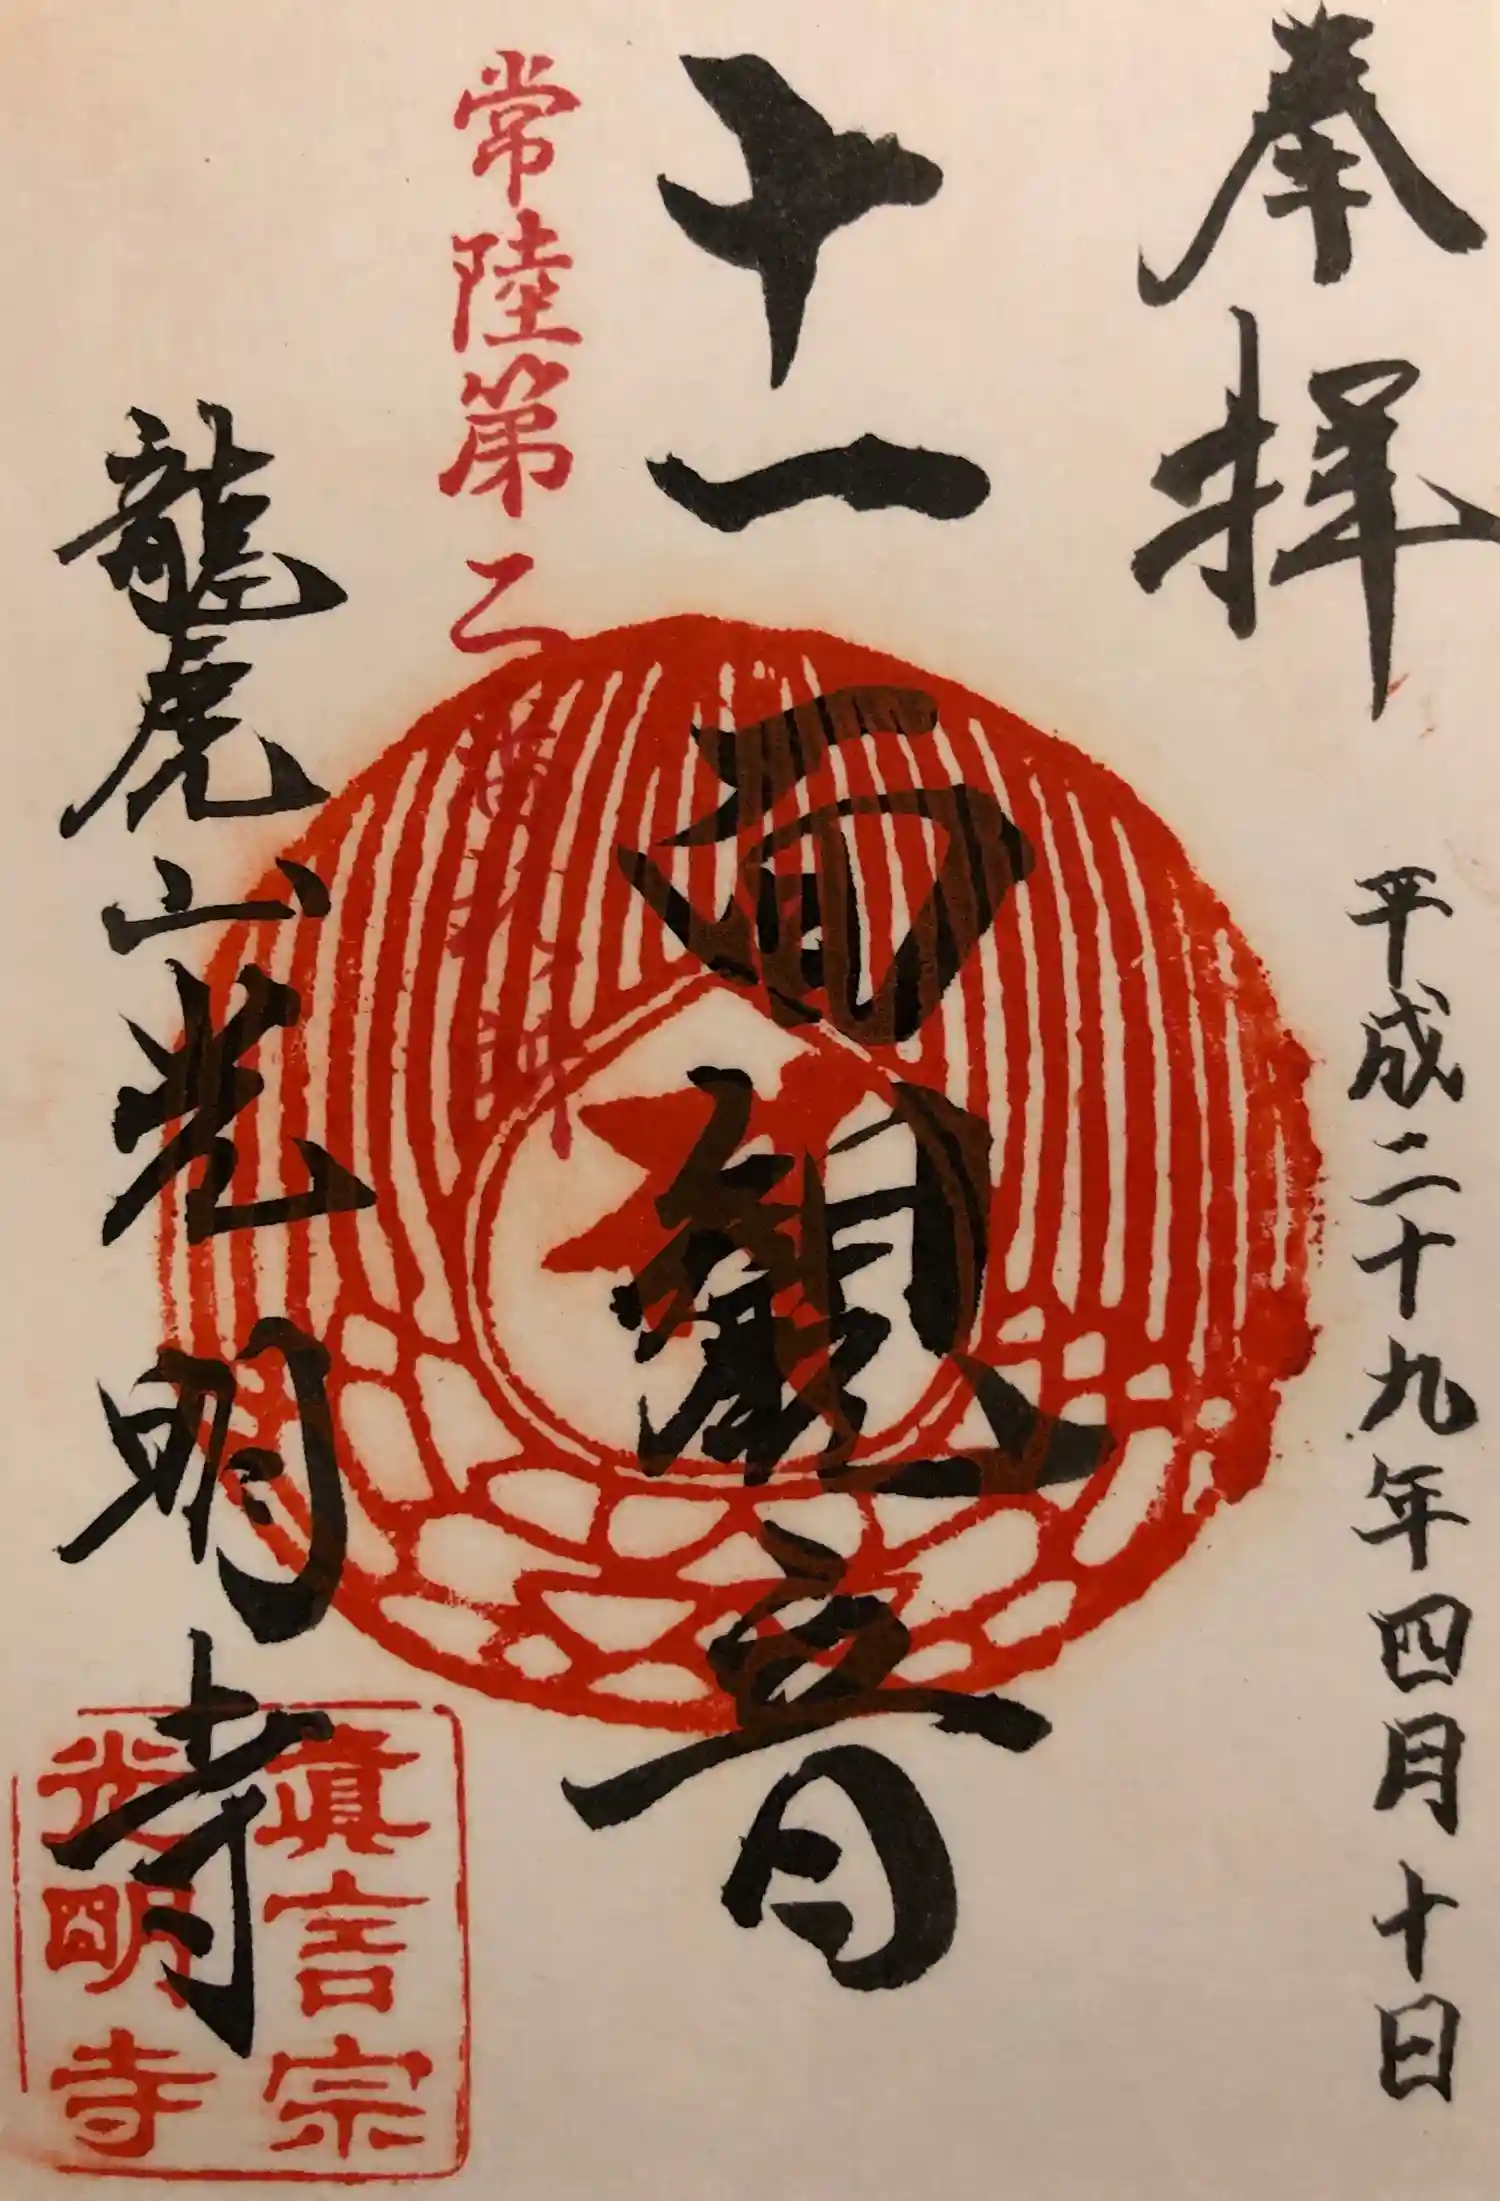 奉拝
平成二十九年四月十日
十一面観音
常陸第二番札所
龍虎山光明寺
眞言宗
光明寺